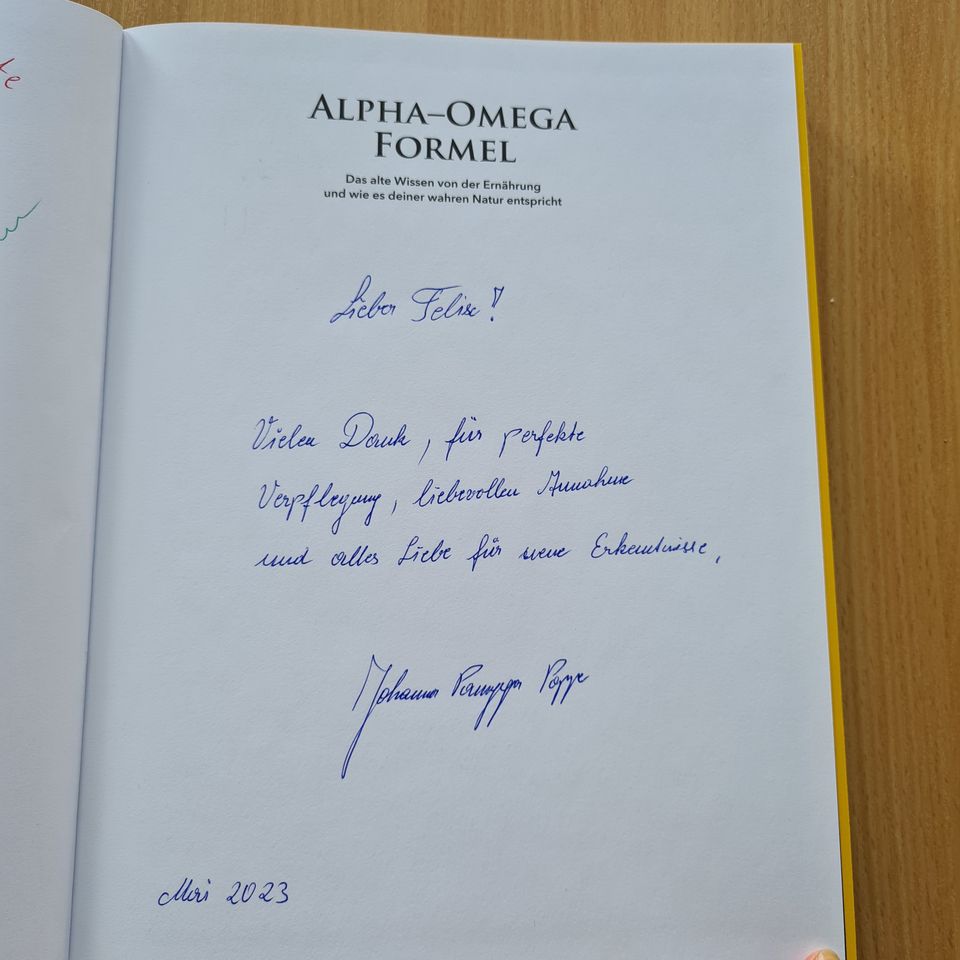 te
ALPHA–OMEGA
FORMEL
Das alte Wissen von der Ernährung
und wie es deiner wahren Natur entspricht
Lieber Felix!
Vielen Dank, für perfekte
Verpflegung, liebevollen Annahme
und alles Liebe für Erkentnisse,
Johanna
Mai 2023